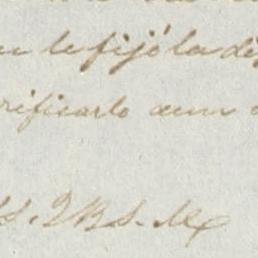 le fijó la di
rificarlo aun
S. Q. B. S. M.